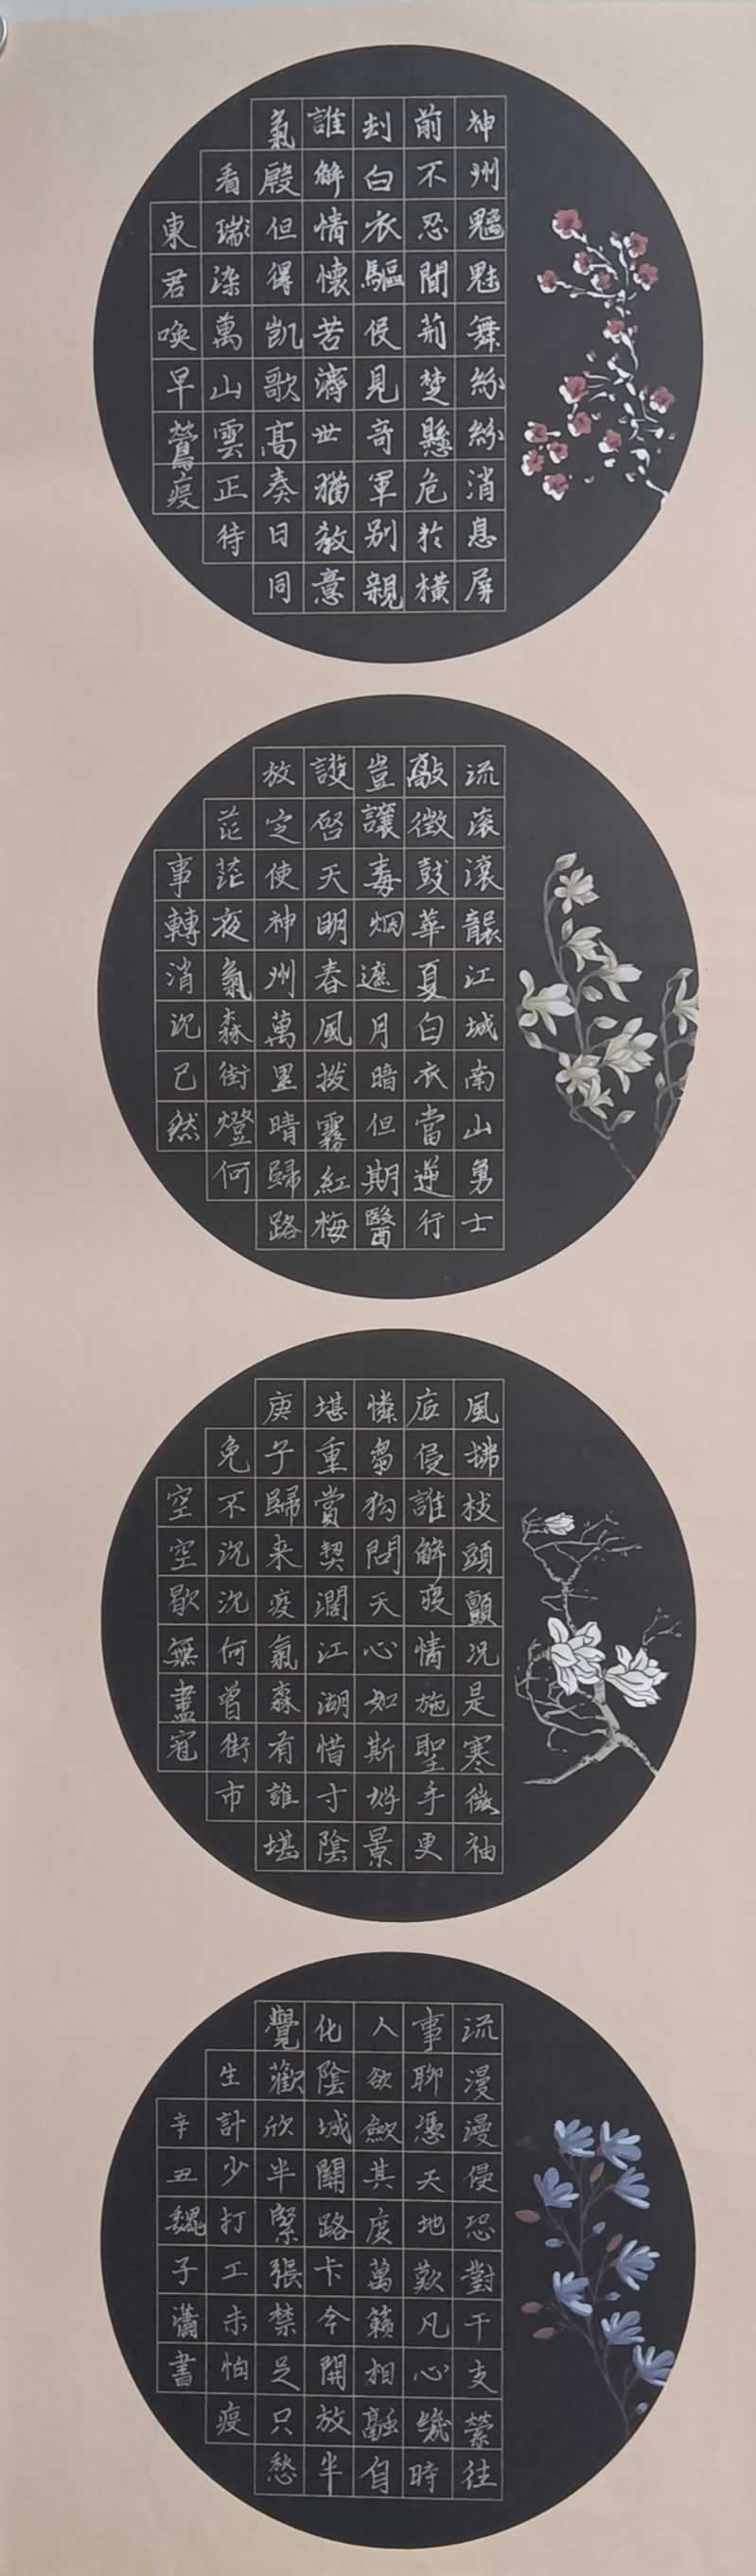 神州魑魅舞紛紛消息屏
前不忍聞荊楚懸危於橫
刦白衣驅侵見奇軍別親
誰解情懷苦濟世猶教意
氣殷但得凱歌高奏日同
看瑞染萬山雲正待
東君喚早鶯疫
流滚滚襲江城南山勇士
敲徵鼓華夏白衣當逆行
豈讓毒烟遮月暗但期醫
護啓天明春風拨霧紅梅
放定使神州萬里晴歸路
茫茫夜氣森街燈何
事轉消沉已然
風拂枝頭顫況是寒微袖
底侵誰解疫情施聖手更
憐芻狗問天心如斯好景
堪重賞契濶江湖惜寸陰
庚子歸來疫氣森有誰堪
免不沉沉何曾街市
空空歇無盡寃
流漫漫侵恐對干支縈往
事聊憑天地歎凡心幾時
人欲歛其度萬籟相融自
化陰陰城關路卡今開放半
覺歡欣半緊張禁足只愁
生計少打工未怕疫
辛丑魏子瀟書